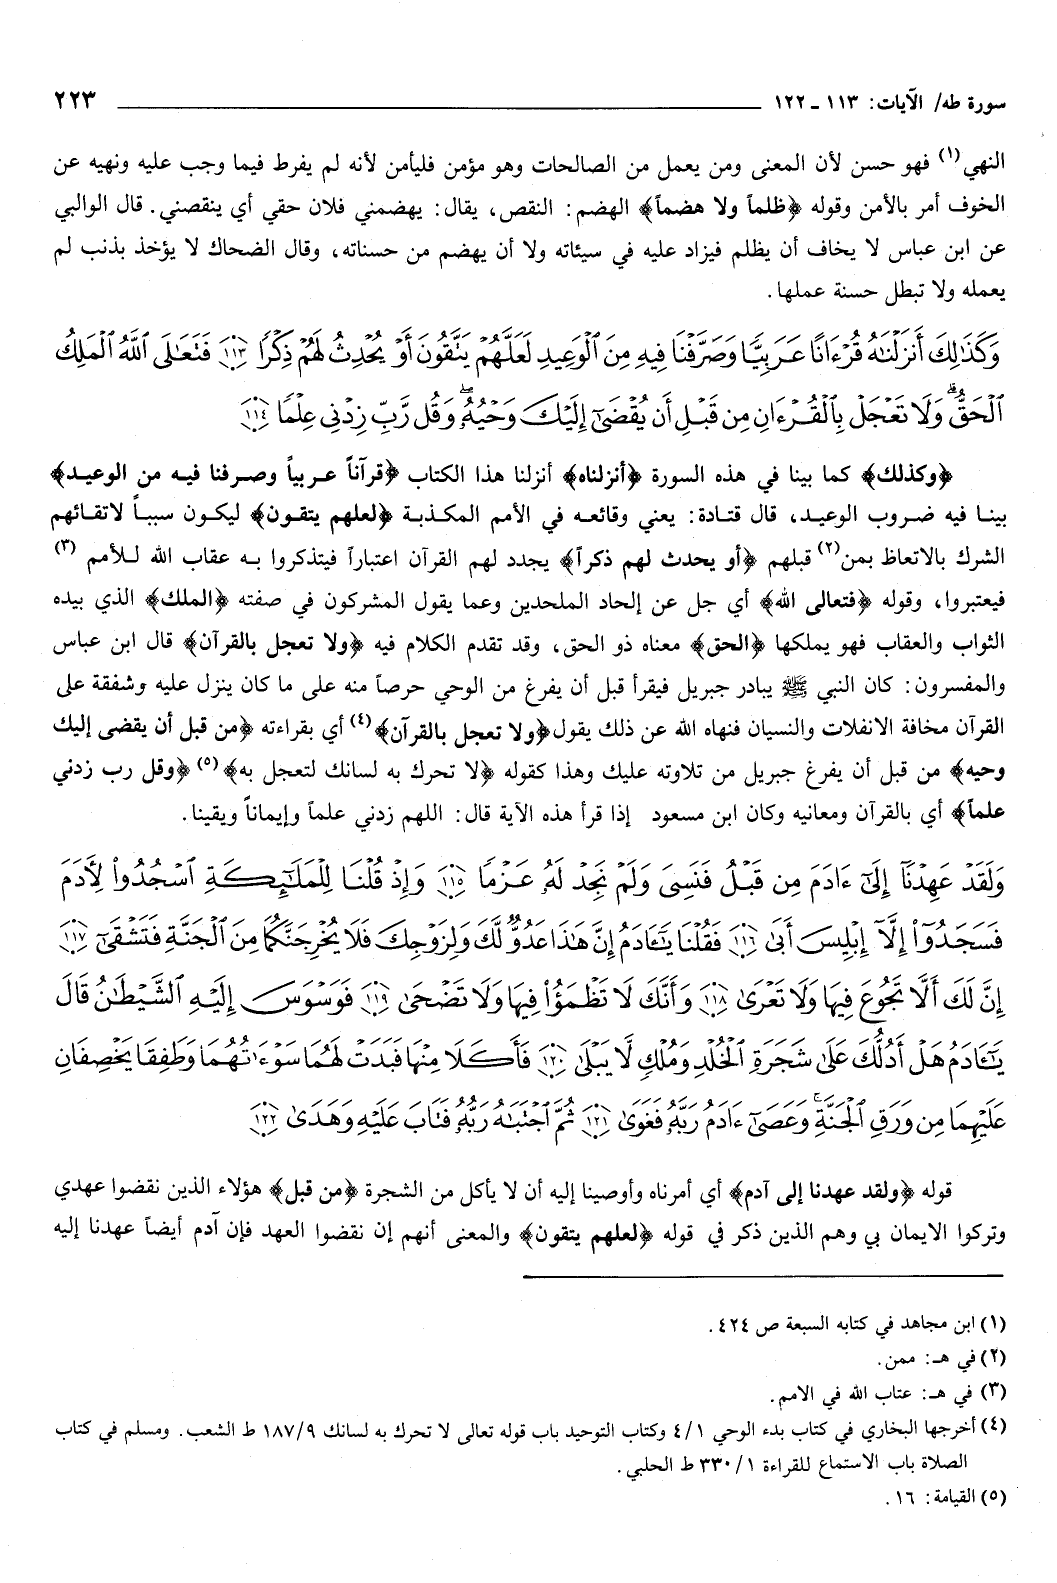 سورة طه/ الآيات: ١١٣ ـ ١٢٢ ٢٢٣
النهي(١) فهو حسن لأن المعنى ومن يعمل من الصالحات وهو مؤمن فليأمن لأنه لم يفرط فيما وجب عليه ونهيه عن
الخوف أمر بالأمن وقوله ﴿ظلماً ولا هضماً﴾ الهضم: النقص، يقال: يهضمني فلان حقي أي ينقصني. قال الوالبي
عن ابن عباس لا يخاف أن يظلم فيزاد عليه في سيئاته ولا أن يهضم من حسناته، وقال الضحاك لا يؤخذ بذنب لم
يعمله ولا تبطل حسنة عملها.
وَكَذَٰلِكَ أَنزَلْنَٰهُ قُرْءَانًا عَرَبِيًّا وَصَرَّفْنَا فِيهِ مِنَ ٱلْوَعِيدِ لَعَلَّهُمْ يَتَّقُونَ أَوْ يُحْدِثُ لَهُمْ ذِكْرًا ١١٣ فَتَعَٰلَى ٱللَّهُ ٱلْمَلِكُ
ٱلْحَقُّ ۗ وَلَا تَعْجَلْ بِٱلْقُرْءَانِ مِن قَبْلِ أَن يُقْضَىٰٓ إِلَيْكَ وَحْيُهُۥ ۖ وَقُل رَّبِّ زِدْنِى عِلْمًا ١١٤
﴿وكذلك﴾ كما بينا في هذه السورة ﴿أنزلناه﴾ أنزلنا هذا الكتاب ﴿قرآناً عربياً وصرفنا فيه من الوعيد﴾
بينا فيه ضروب الوعيد، قال قتادة: يعني وقائعه في الأمم المكذبة ﴿لعلهم يتقون﴾ ليكون سبباً لاتقائهم
الشرك بالاتعاظ بمن(٢) قبلهم ﴿أو يحدث لهم ذكراً﴾ يجدد لهم القرآن اعتباراً فيتذكروا به عقاب الله للأمم (٣)
فيعتبروا، وقوله ﴿فتعالى الله﴾ أي جل عن إلحاد الملحدين وعما يقول المشركون في صفته ﴿الملك﴾ الذي بيده
الثواب والعقاب فهو يملكها ﴿الحق﴾ معناه ذو الحق، وقد تقدم الكلام فيه ﴿ولا تعجل بالقرآن﴾ قال ابن عباس
والمفسرون: كان النبي ﷺ يبادر جبريل فيقرأ قبل أن يفرغ من الوحي حرصاً منه على ما كان ينزل عليه وشفقة على
القرآن مخافة الانفلات والنسيان فنهاه الله عن ذلك يقول﴿ولا تعجل بالقرآن﴾(٤) أي بقراءته ﴿من قبل أن يقضى إليك
وحيه﴾ من قبل أن يفرغ جبريل من تلاوته عليك وهذا كقوله ﴿لا تحرك به لسانك لتعجل به﴾(٥) ﴿وقل رب زدني
علماً﴾ أي بالقرآن ومعانيه وكان ابن مسعود إذا قرأ هذه الآية قال: اللهم زدني علماً وإيماناً ويقينا.
وَلَقَدْ عَهِدْنَآ إِلَىٰٓ ءَادَمَ مِن قَبْلُ فَنَسِىَ وَلَمْ نَجِدْ لَهُۥ عَزْمًا ١١٥ وَإِذْ قُلْنَا لِلْمَلَٰٓئِكَةِ ٱسْجُدُوا۟ لِأَدَمَ
فَسَجَدُوٓا۟ إِلَّآ إِبْلِيسَ أَبَىٰ ١١٦ فَقُلْنَا يَٰٓـَٔادَمُ إِنَّ هَٰذَا عَدُوٌّ لَّكَ وَلِزَوْجِكَ فَلَا يُخْرِجَنَّكُمَا مِنَ ٱلْجَنَّةِ فَتَشْقَىٰٓ ١١٧
إِنَّ لَكَ أَلَّا تَجُوعَ فِيهَا وَلَا تَعْرَىٰ ١١٨ وَأَنَّكَ لَا تَظْمَؤُا۟ فِيهَا وَلَا تَضْحَىٰ ١١٩ فَوَسْوَسَ إِلَيْهِ ٱلشَّيْطَٰنُ قَالَ
يَٰٓـَٔادَمُ هَلْ أَدُلُّكَ عَلَىٰ شَجَرَةِ ٱلْخُلْدِ وَمُلْكٍ لَّا يَبْلَىٰ ١٢٠ فَأَكَلَا مِنْهَا فَبَدَتْ لَهُمَا سَوْءَٰتُهُمَا وَطَفِقَا يَخْصِفَانِ
عَلَيْهِمَا مِن وَرَقِ ٱلْجَنَّةِ ۚ وَعَصَىٰٓ ءَادَمُ رَبَّهُۥ فَغَوَىٰ ١٢١ ثُمَّ ٱجْتَبَٰهُ رَبُّهُۥ فَتَابَ عَلَيْهِ وَهَدَىٰ ١٢٢
قوله ﴿ولقد عهدنا إلى آدم﴾ أي أمرناه وأوصينا إليه أن لا يأكل من الشجرة ﴿من قبل﴾ هؤلاء الذين نقضوا عهدي
وتركوا الايمان بي وهم الذين ذكر في قوله ﴿لعلهم يتقون﴾ والمعنى أنهم إن نقضوا العهد فإن آدم أيضاً عهدنا إليه
(١) ابن مجاهد في كتابه السبعة ص ٤٢٤.
(٢) في هـ: ممن.
(٣) في هـ: عتاب الله في الامم.
(٤) أخرجها البخاري في كتاب بدء الوحي ٤/١ وكتاب التوحيد باب قوله تعالى لا تحرك به لسانك ١٨٧/٩ ط الشعب. ومسلم في كتاب
الصلاة باب الاستماع للقراءة ٣٣٠/١ ط الحلبي.
(٥) القيامة: ١٦.